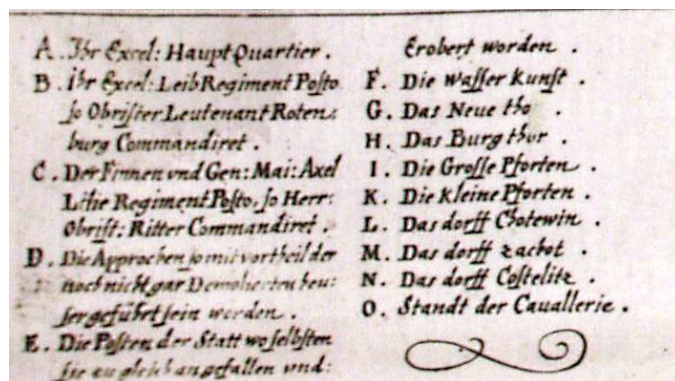 A. Ihr Excel: Haupt Quartier.
B. Ihr Excel: Leib Regiment Posto
so Obrister Leutenant Roten:
burg Commandiret.
C. Der Finnen vnd Gen: Mai: Axel
Lilie Regiment Posto, so Herr:
Obrist: Ritter Commandiret.
D. Die Approchen so mit vortheil der
noch nicht gar Demolierten heu:
ser geführt sein worden.
E. Die Posten der Statt wo selbsten
sie zu gleich angefallen vnd:
Erobert worden.
F. Die wasser kunst.
G. Das Neue tho
H. Das Burg thor.
I. Die Grosse Pforten.
K. Die kleine Pforten.
L. Das dorff Chotewin.
M. Das dorff zackot.
N. Das dorff Costelitz.
O. Standt der Cauallerie.